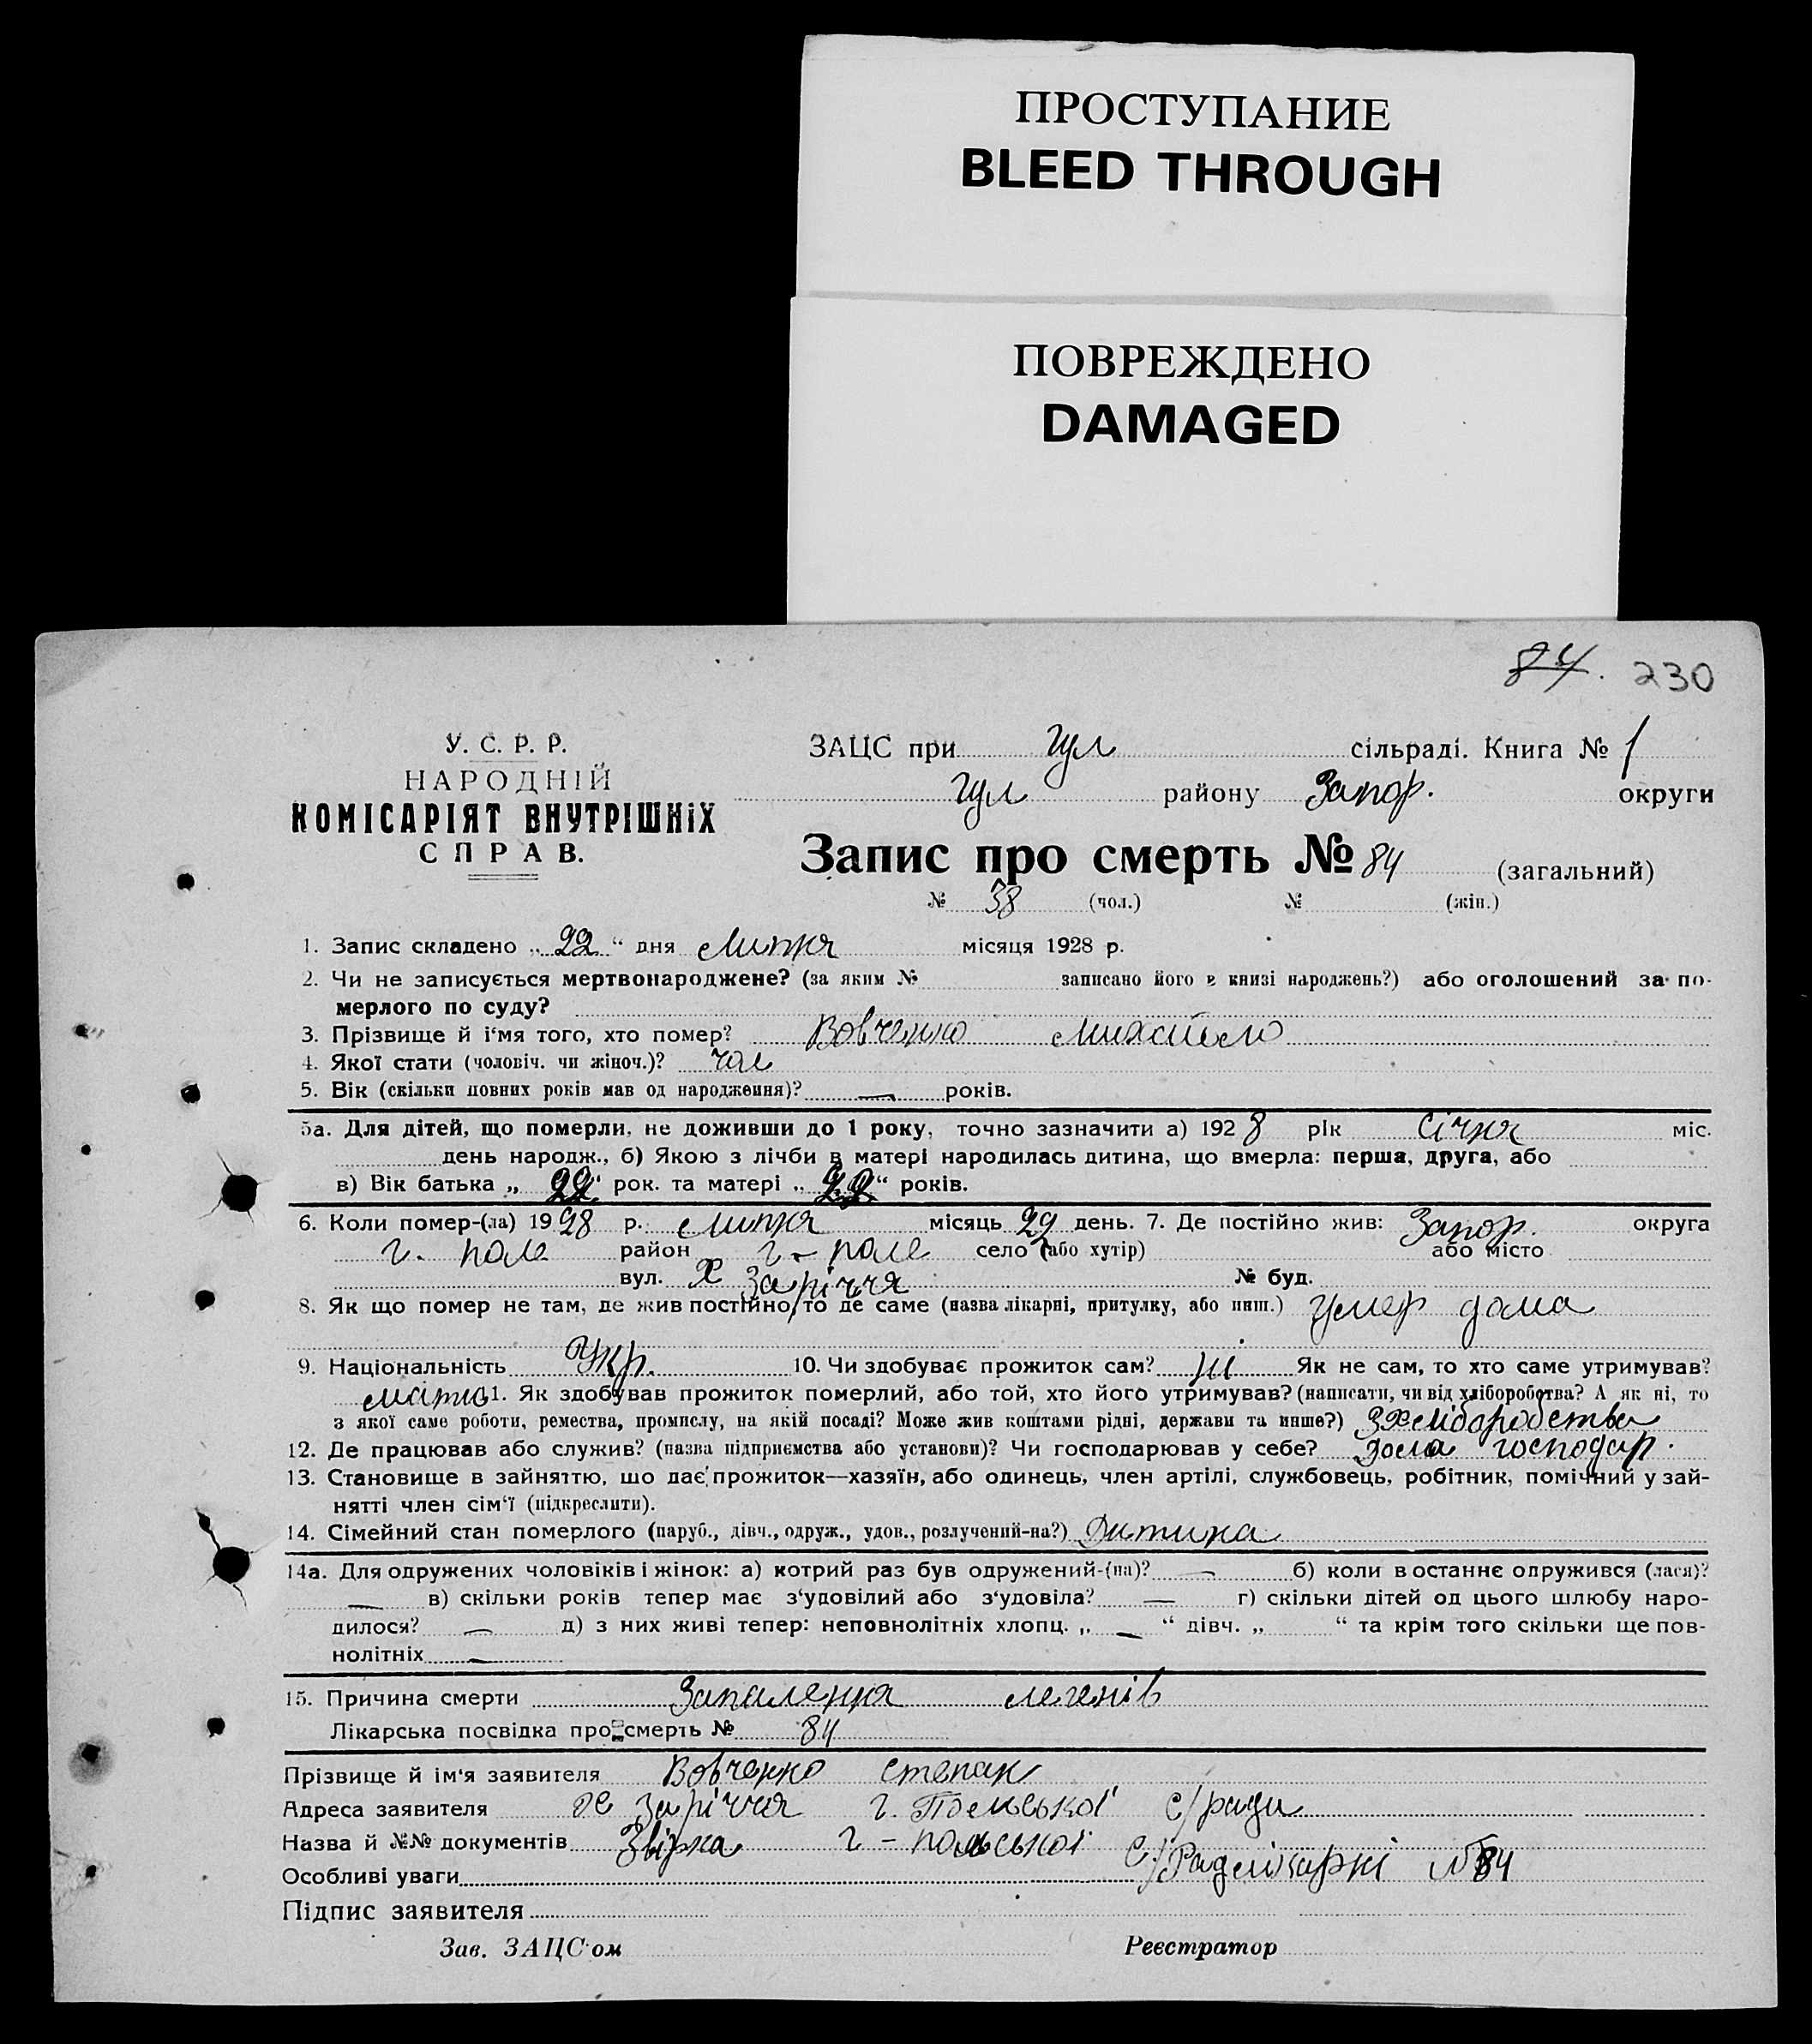 ПРОСТУПАНИЕ
BLEED THROUGH
ПОВРЕЖДЕНО
DAMAGED
84. 230
У. С. Р. Р.
НАРОДНІЙ
КОМІСАРІЯТ ВНУТРІШНІХ
СПРАВ.
ЗАЦС при Гул сільраді. Книга № 1
Гул району Запор. округи
Запис про смерть № 84 (загальний)
№ 38 (чол.) № (жін.)
1. Запис складено „ 22 “ дня Липня місяця 1928 р.
2. Чи не записується мертвонароджене? (за яким № записано його в книзі народжень?) або оголошений за по-
мерлого по суду?
3. Прізвище й і'мя того, хто помер? Вовченко Михайло
4. Якої стати (чоловіч. чи жіноч.)? чол
5. Вік (скільки повних років мав од народження)? — років.
5а. Для дітей, що померли, не доживши до 1 року, точно зазначити а) 1928 рік Січня міс.
день народж., б) Якою з лічби в матері народилась дитина, що вмерла: перша, друга, або
в) Вік батька „ 22 “ рок. та матері „ 22 “ років.
6. Коли помер-(ла) 1928 р. Липня місяць день. 7. Де постійно жив: Запор. округа
г. поле район г - поле село (або хутір) або місто
вул. Х Заріччя № буд.
8. Як що помер не там, де жив постійно, то де саме (назва лікарні, притулку, або инш.) умер дома
9. Національність Укр. 10. Чи здобуває прожиток сам? ні Як не сам, то хто саме утримував?
мати 11. Як здобував прожиток померлий, або той, хто його утримував? (написати, чи від хліборобства? А як ні, то
з якої саме роботи, ремества, промислу, на якій посаді? Може жив коштами рідні, держави та инше?) З хліборобства
12. Де працював або служив? (назва підприємства або установи)? Чи господарював у себе? дома господар.
13. Становище в зайняттю, що дає прожиток—хазяїн, або одинець, член артілі, службовець, робітник, помічний у зай-
нятті член сім'ї (підкреслити).
14. Сімейний стан померлого (паруб., дівч., одруж., удов., розлучений-на?) Дитина
14а. Для одружених чоловіків і жінок: а) котрий раз був одружений-(на)? — б) коли в останнє одружився (лася)?
— в) скільки років тепер має з'удовілий або з'удовіла? — г) скільки дітей од цього шлюбу наро-
дилося? — д) з них живі тепер: неповнолітніх хлопц. „ — “ дівч. „ “ та крім того скільки ще пов-
нолітніх —
15. Причина смерти Запалення легенів
Лікарська посвідка про смерть № 84
Прізвище й ім'я заявителя Вовченко Степан
Адреса заявителя х Заріччя г. Польської с/ради
Назва й №№ документів Звірка г - польської с/Ради карні №84
Особливі уваги
Підпис заявителя
Зав. ЗАЦС'ом Реєстратор